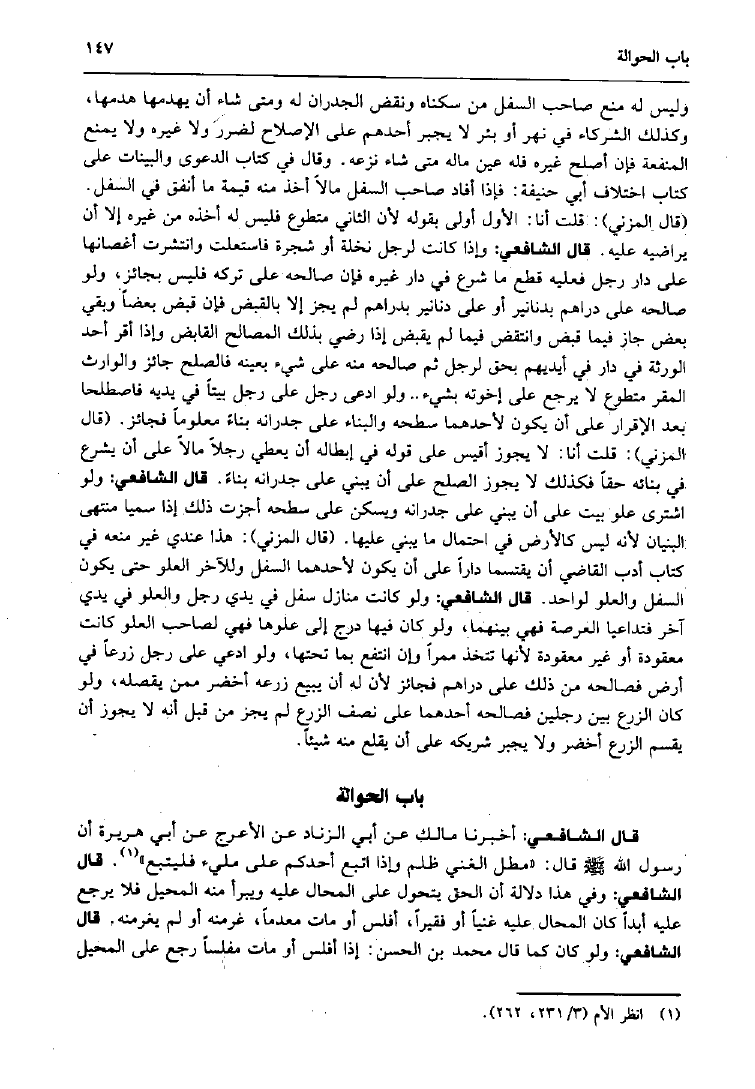 باب الحوالة ١٤٧
وليس له منع صاحب السفل من سكناه ونقض الجدران له ومتى شاء أن يهدمها هدمها،
وكذلك الشركاء في نهر أو بئر لا يجبر أحدهم على الإصلاح لضرر ولا غيره ولا يمنع
المنفعة فإن أصلح غيره فله عين ماله متى شاء نزعه. وقال في كتاب الدعوى والبينات على
كتاب اختلاف أبي حنيفة: فإذا أفاد صاحب السفل مالاً أخذ منه قيمة ما أنفق في السفل.
(قال المزني): قلت أنا: الأول أولى بقوله لأن الثاني متطوع فليس له أخذه من غيره إلا أن
يراضيه عليه. قال الشافعي: وإذا كانت لرجل نخلة أو شجرة فاستعلت وانتشرت أغصانها
على دار رجل فعليه قطع ما شرع في دار غيره فإن صالحه على تركه فليس بجائز، ولو
صالحه على دراهم بدنانير أو على دنانير بدراهم لم يجز إلا بالقبض فإن قبض بعضاً وبقي
بعض جاز فيما قبض وانتقض فيما لم يقبض إذا رضي بذلك المصالح القابض وإذا أقر أحد
الورثة في دار في أيديهم بحق لرجل ثم صالحه منه على شيء بعينه فالصلح جائز والوارث
المقر متطوع لا يرجع على إخوته بشيء.. ولو ادعى رجل على رجل بيتاً في يديه فاصطلحا
بعد الإقرار على أن يكون لأحدهما سطحه والبناء على جدرانه بناءً معلوماً فجائز. (قال
المزني): قلت أنا: لا يجوز أقيس على قوله في إبطاله أن يعطي رجلاً مالاً على أن يشرع
في بنائه حقاً فكذلك لا يجوز الصلح على أن يبني على جدرانه بناءً. قال الشافعي: ولو
اشترى علو بيت على أن يبني على جدرانه ويسكن على سطحه أجزت ذلك إذا سميا منتهى
البنيان لأنه ليس كالأرض في احتمال ما يبني عليها. (قال المزني): هذا عندي غير منعه في
كتاب أدب القاضي أن يقتسما داراً على أن يكون لأحدهما السفل وللآخر العلو حتى يكون
السفل والعلو لواحد. قال الشافعي: ولو كانت منازل سفل في يدي رجل والعلو في يدي
آخر فتداعيا العرصة فهي بينهما، ولو كان فيها درج إلى علوها فهي لصاحب العلو كانت
معقودة أو غير معقودة لأنها تتخذ ممراً وإن انتفع بما تحتها، ولو ادعي على رجل زرعاً في
أرض فصالحه من ذلك على دراهم فجائز لأن له أن يبيع زرعه أخضر ممن يقصله، ولو
كان الزرع بين رجلين فصالحه أحدهما على نصف الزرع لم يجز من قبل أنه لا يجوز أن
يقسم الزرع أخضر ولا يجبر شريكه على أن يقلع منه شيئاً.
باب الحوالة
قال الشافعي: أخبرنا مالك عن أبي الزناد عن الأعرج عن أبي هريرة أن
رسول الله ﷺ قال: «مطل الغني ظلم وإذا اتبع أحدكم على مليء فليتبع»(١). قال
الشافعي: وفي هذا دلالة أن الحق يتحول على المحال عليه ويبرأ منه المحيل فلا يرجع
عليه أبداً كان المحال عليه غنياً أو فقيراً، أفلس أو مات معدماً، غرمنه أو لم يغرمنه. قال
الشافعي: ولو كان كما قال محمد بن الحسن: إذا أفلس أو مات مفلساً رجع على المحيل
(١) انظر الأم (٣/ ٢٣١، ٢٦٢).